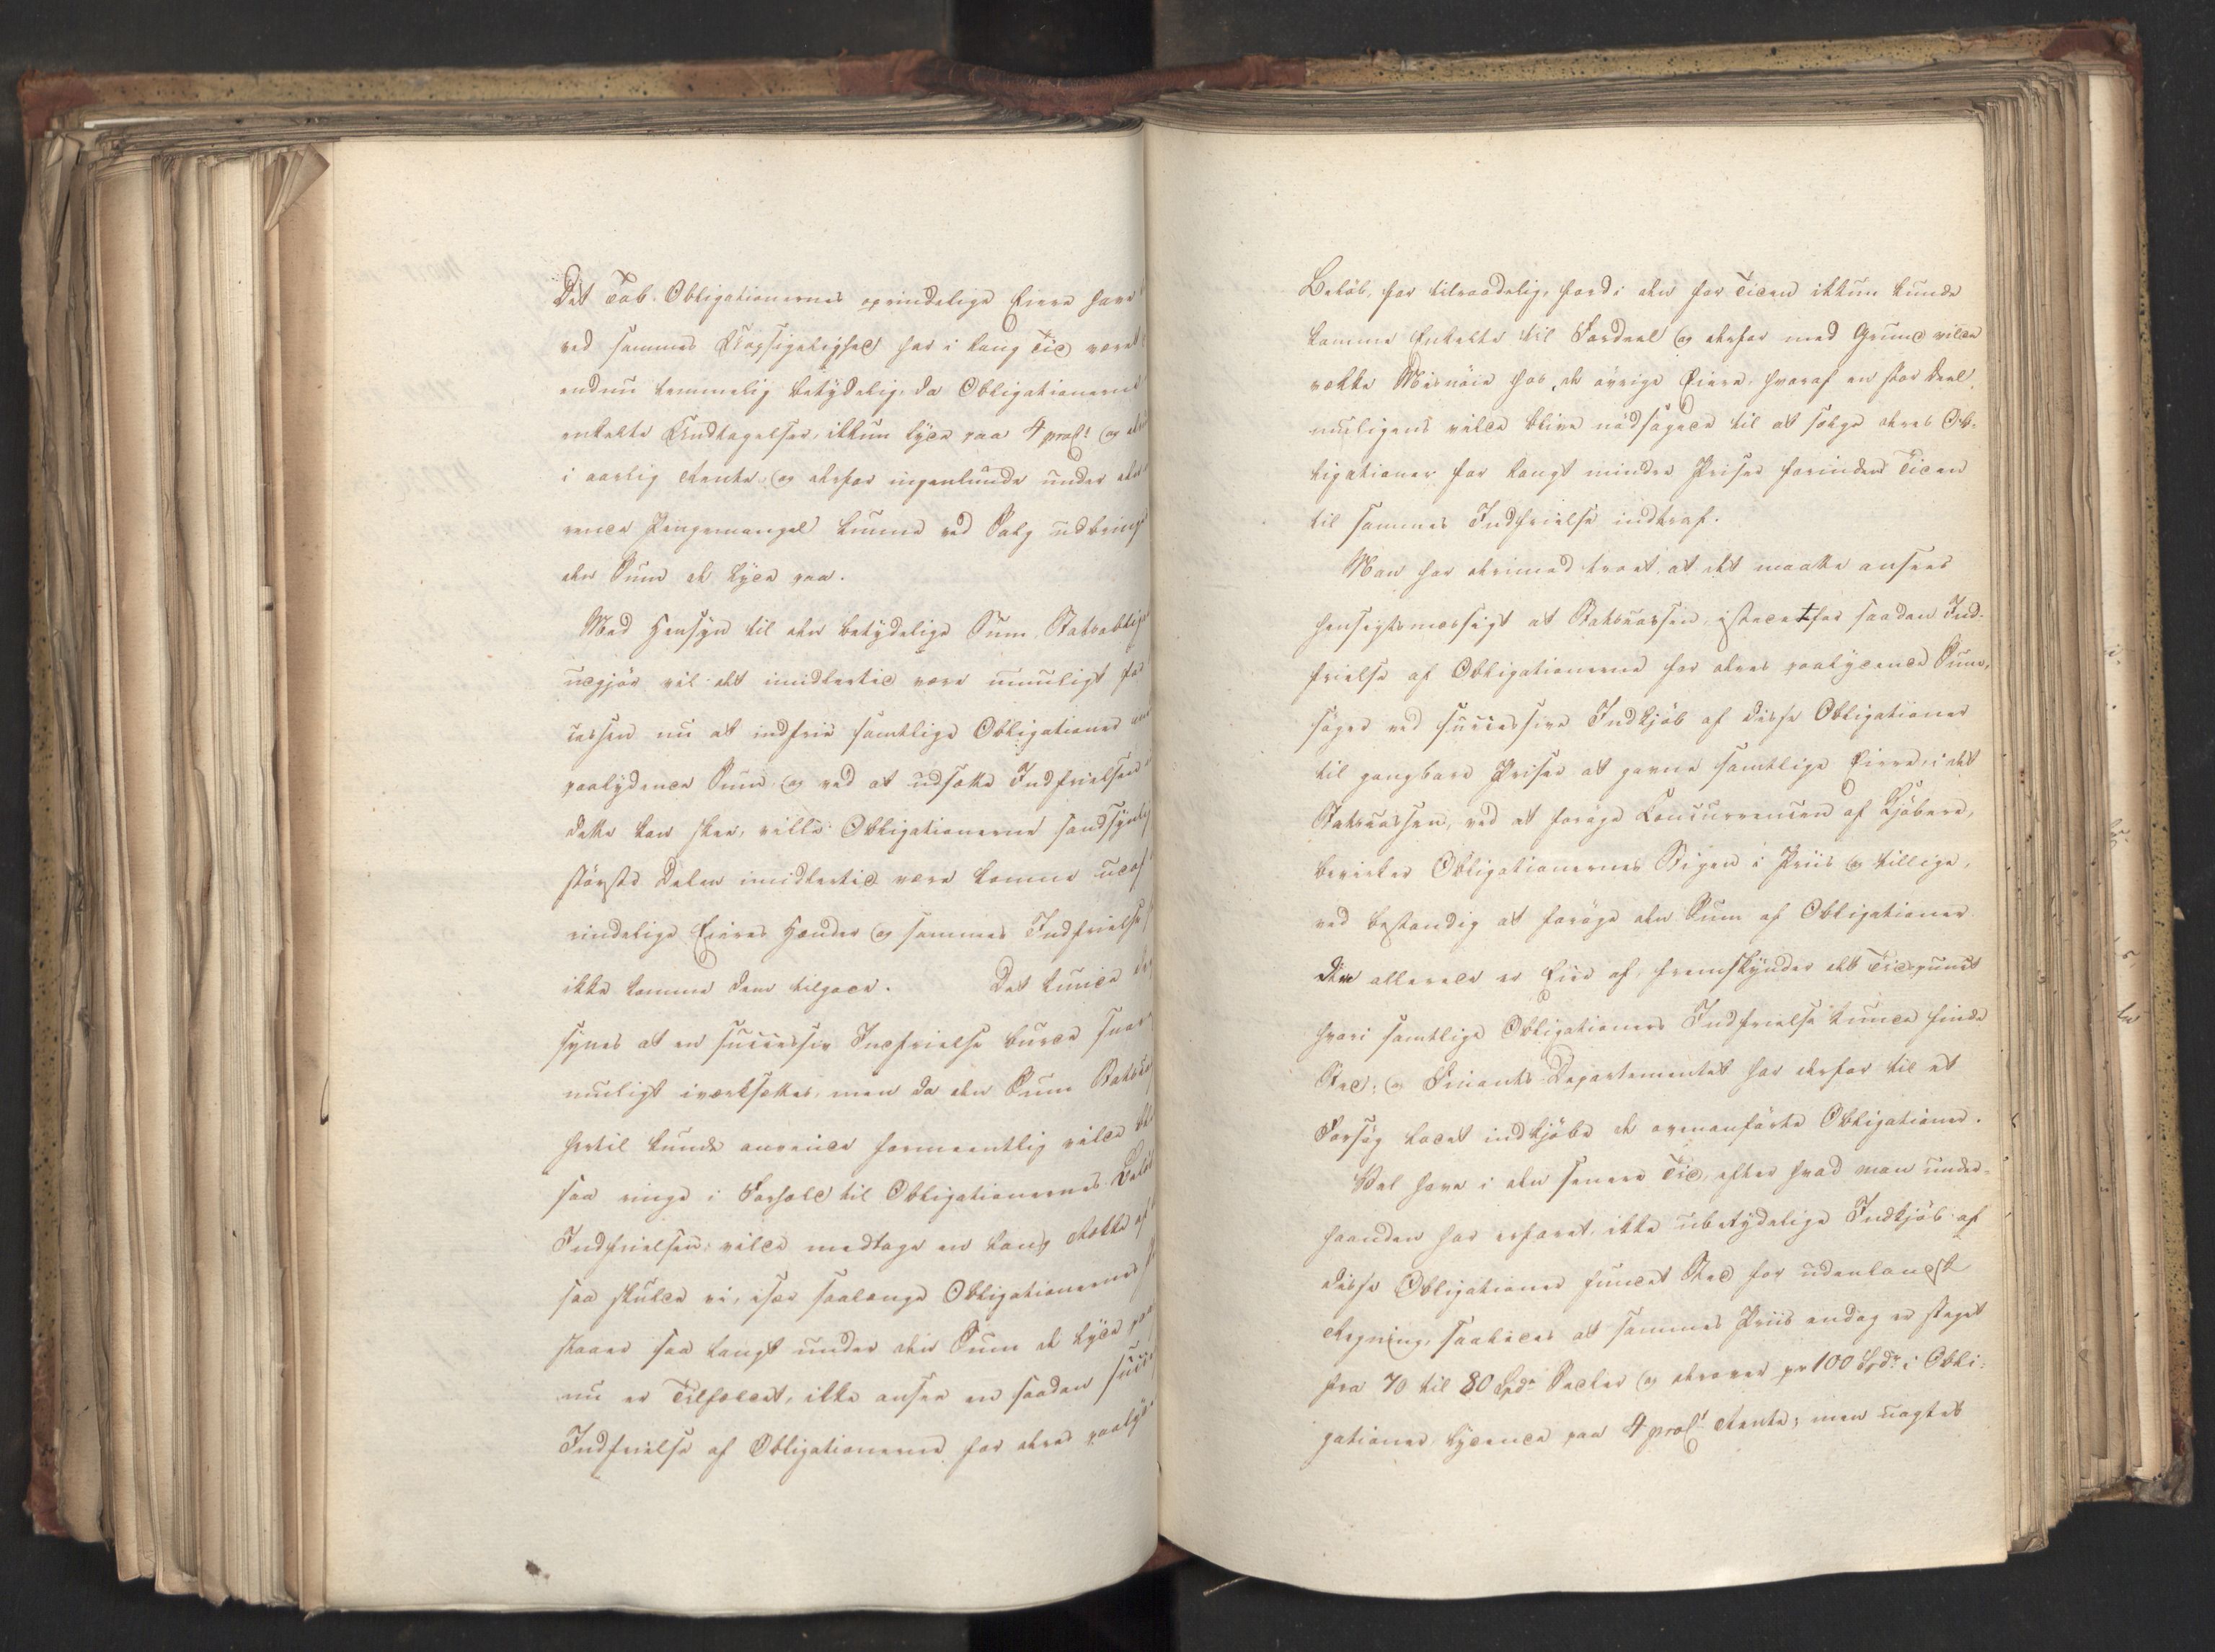 Det Tab Obligationernes oprindelige Eiere have
ved sammes Uopsigelighed har i lang Tid været
endnu temmelig betydelig, da Obligationerne
enkelte Undtagelser, ikkun lyde paa 4 proCt og
i aarlig Rente, og derfor ingenlunde under den
rende Pengemangel kunne ved Salg udbringe
den Sum de lyde paa.
Med Hensyn til den betydelige Sum, Statsoblig
udgjør vil det imidlertid være umuligt for
cassen nu at indfrie samtlige Obligationer
paalydende Sum, og ved at udsætte Indfrielsen
dette kan skee, ville Obligationerne sandsynlig
største Delen imidlertid være komne ud af
rindelige Eieres Hænder og sammes Indfrielse
ikke komme dem tilgode. Det kunde
synes at en successiv Indfrielse burde snar
muligt iværksættes, men da den Sum Statscas
hertil kunde anvende formeentlig vilde
saa ringe i Forhold til Obligationernes Beløb
Indfrielsen vilde medtage en lang Række af
saa skulde vi, især saalænge Obligationernes
staaer saa langt under den Sum de lyde paa
nu er Tilfældet, ikke ansee en saadan succ
Indfrielse af Obligationerne for deres paaly
Beløb, for tilraadelig, fordi den for Tiden ikkun kunde
komme Enkelte til Fordeel og derfor med Grund vilde
vække Misnøie hos de øvrige Eiere, hvoraf en stor Deel
muligens vilde blive nødsagede til at sælge deres Ob-
ligationer for langt mindre Priser forinden Tiden
til sammes Indfrielse indtraf.
Man har derimod troet, at det maatte ansees
hensigtsmæssigt at Statscassen, istedetfor saadan Ind-
frielse af Obligationerne for deres paalydende Sum,
søger ved successive Indkjøb af disse Obligationer
til gangbare Priser at gavne samtlige Eiere, i det
Statscassen, ved at forøge Concurrencen af Kjøbere,
bevirker Obligationernes Stigen i Priis og tillige,
ved bestandig at forøge den Sum af Obligationer
den allerede er Eier af, fremskynder det Tidspunct
hvori samtlige Obligationers Indfrielse kunde finde
Sted; og Finants-Departementet har derfor til et
Forsøg ladet indkjøbe de ovenanførte Obligationer.
Vel have i den senere Tid, efter hvad man under-
haanden har erfaret, ikke ubetydelige Indkjøb af
disse Obligationer fundet Sted for udenlandsk
Regning, saaledes at sammes Priis endog er steget
fra 70 til 80 Spdr Sedler og derover pr 100 Spdr i Obli-
gationer, lydende paa 4 proCt Rente; men uagtet